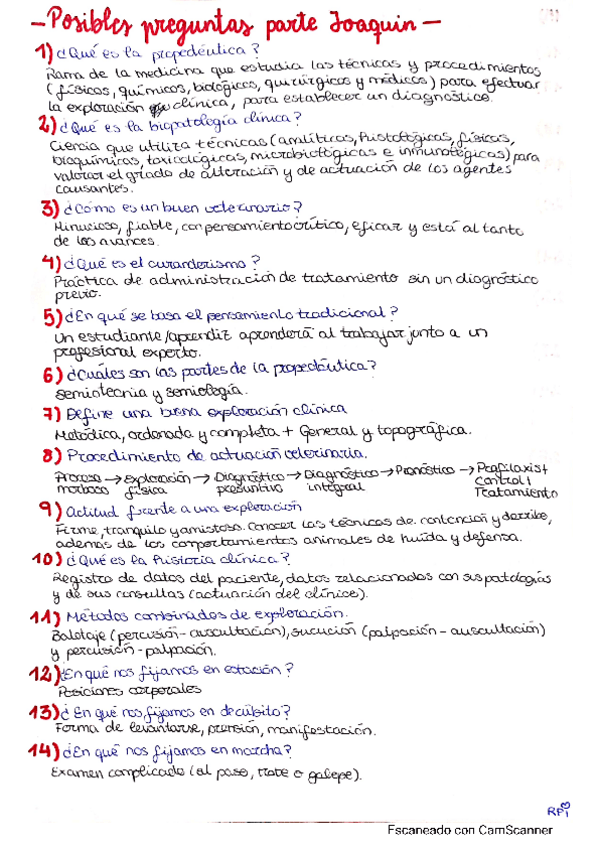 -Posibles preguntas parte Joaquin-
1) ¿Qué es la propedéutica?
Rama de la medicina que estudia las técnicas y procedimientos
(físicos, químicos, biológicos, quirúrgicos y médicos) para efectuar
la exploración clínica, para establecer un diagnóstico.
2) ¿Qué es la biopatología clínica?
Ciencia que utiliza técnicas (analíticas, histológicas, físicas,
bioquímicas, toxicológicas, microbiológicas e inmunológicas) para
valorar el grado de alteración y de actuación de los agentes
causantes.
3) ¿Cómo es un buen veterinario?
Minucioso, fiable, con pensamiento crítico, eficaz y está al tanto
de los avances.
4) ¿Qué es el curanderismo?
Práctica de administración de tratamiento sin un diagnóstico
previo.
5) ¿En qué se basa el pensamiento tradicional?
Un estudiante/aprendiz aprenderá al trabajar junto a un
profesional experto.
6) ¿Cuáles son las partes de la propedéutica?
Semiotecnia y semiología.
7) Define una buena exploración clínica
Metódica, ordenada y completa + General y topográfica.
8) Procedimiento de actuación veterinaria.
Proceso → Exploración → Diagnóstico → Diagnóstico → Pronóstico → Profilaxis+
morboso física presuntivo integral Control+
Tratamiento
9) Actitud frente a una exploración
Firme, tranquilo y amistoso. Conocer las técnicas de contención y derribe,
además de los comportamientos animales de huida y defensa.
10) ¿Qué es la historia clínica?
Registro de datos del paciente, datos relacionados con sus patologías
y de sus consultas (actuación del clínico).
11) Métodos combinados de exploración.
Balotaje (percusión-auscultación), sucusión (palpación-auscultación)
y percusión-palpación.
12) ¿En qué nos fijamos en estación?
Posiciones corporales
13) ¿En qué nos fijamos en decúbito?
Forma de levantarse, prensión, manifestación.
14) ¿En qué nos fijamos en marcha?
Examen complicado (al paso, trote o galope).
RPi
Escaneado con CamScanner